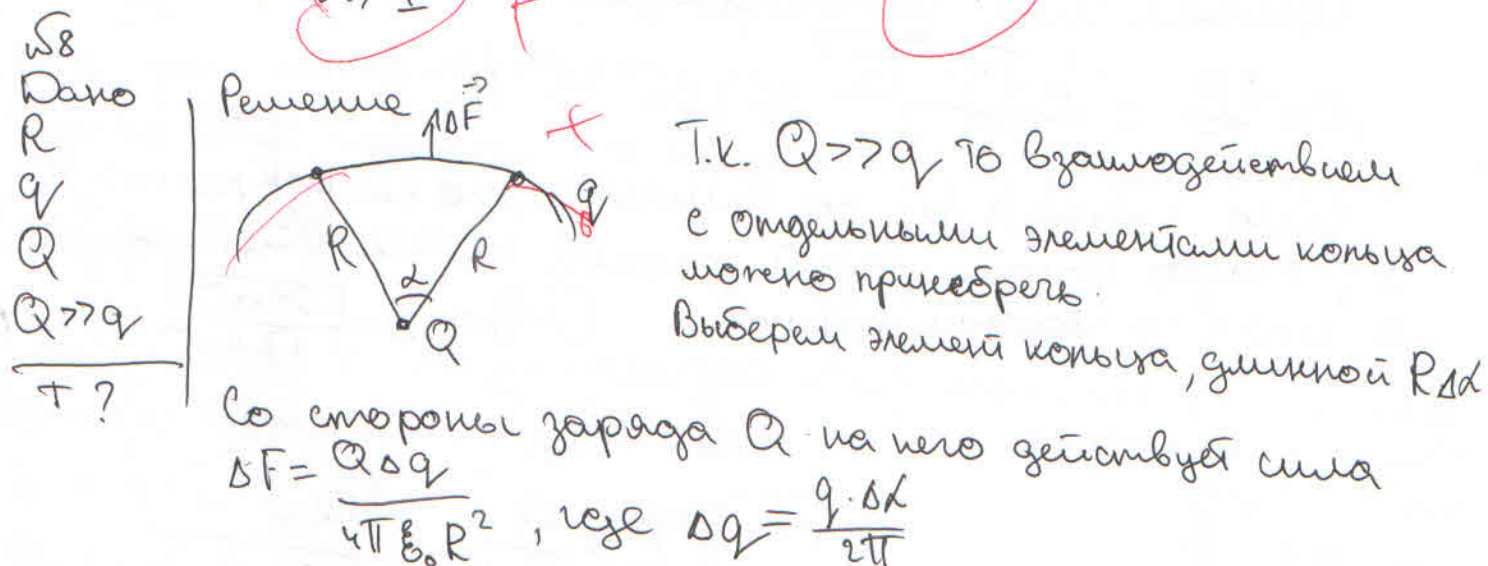 №8
Дано
R
q
Q
Q>>q
T ?
Решение
ΔF⃗
R R
α
Q
q
Т.к. Q>>q то взаимодействием
с отдельными элементами кольца
можно принебречь.
Выберем элемент кольца, длинной RΔα
Со стороны заряда Q на него действует сила
ΔF = QΔq / 4πε₀R², где Δq = q·Δα / 2π